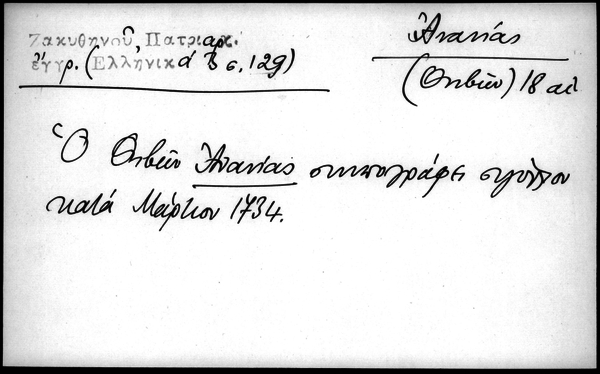 Ζακυθηνοῦ, Πατριαρχ.
ἔγγρ. (Ἑλληνικά 3 σ. 129)
Ἀνανίας
(Θηβῶν) 18 αἰ
Ὁ Θηβῶν Ἀνανίας συνυπογράφει σιγίλλιον
κατά Μάρτιον 1734.